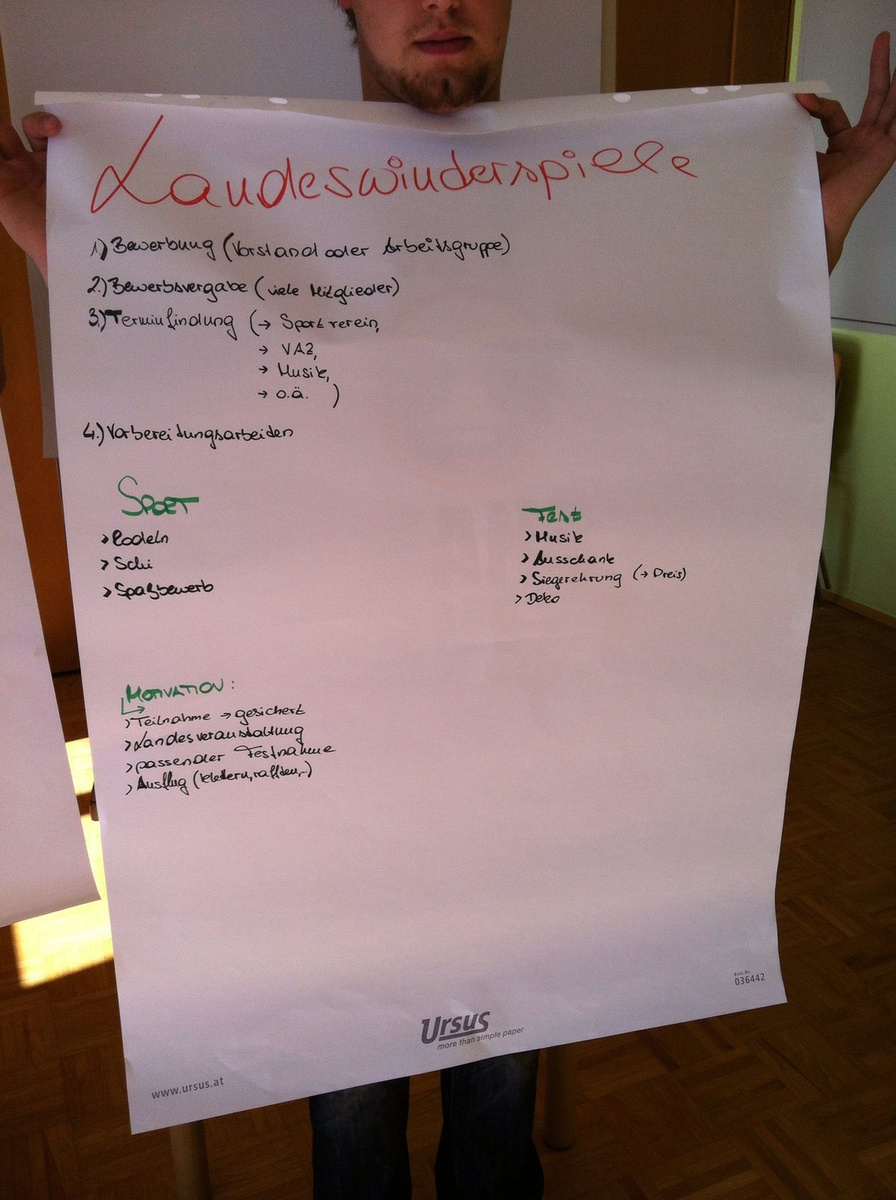 Landeswinderspiele
1.) Bewerbung (Vorstand oder Arbeitsgruppe)
2.) Bewerbsvergabe (viele Mitglieder)
3.) Terminfindung (→ Sportverein,
→ VAZ,
→ Musik,
→ o.ä. )
4.) Vorbereitungsarbeiten
SPORT
> Rodeln
> Schi
> Spaßbewerb
FEST
> Musik
> Ausschank
> Siegerehrung (→ Preis)
> Deko
MOTIVATION:
> Teilnahme → gesichert
> Landesveranstaltung
> passender Festnahme
> Ausflug (klettern, raften,..)
Best.Nr.
036442
Ursus
more than simple paper
www.ursus.at